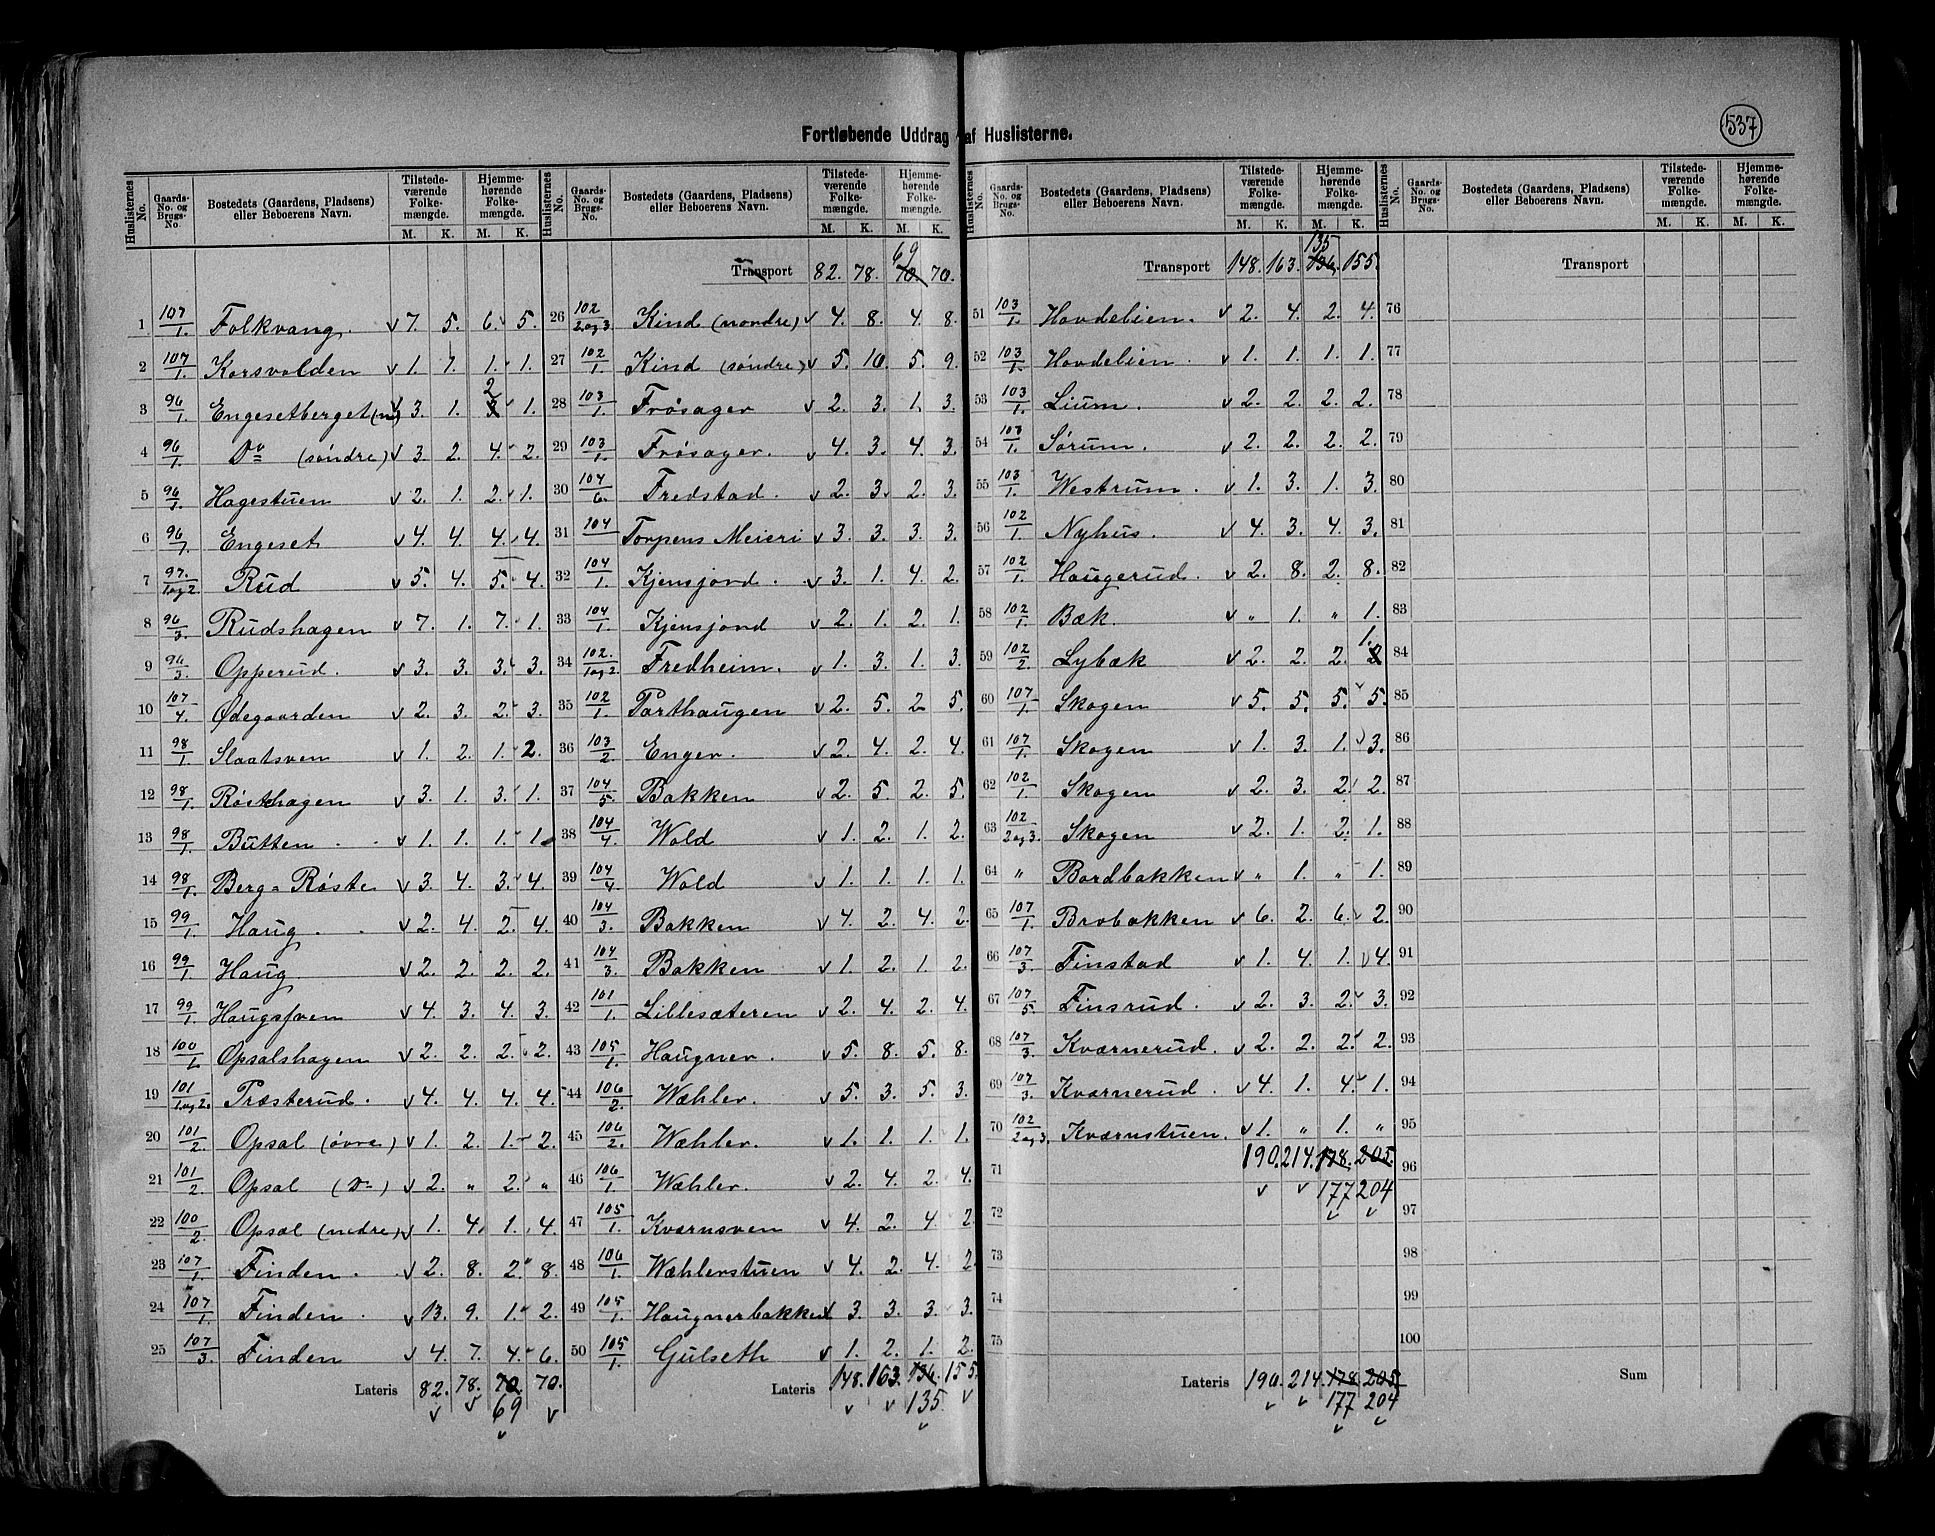 537
Fortløbende Uddrag af Huslisterne.
Huslisternes No. | Gaards-No. og Brugs-No. | Bostedets (Gaardens, Pladsens) eller Beboerens Navn. | Tilstedeværende Folkemængde. M. K. | Hjemmehørende Folkemængde. M. K.
1 107/1. Folkvang. 7. 5. 6. 5.
2 107/1. Korsvolden 1. 1. 1. 1.
3 96/1. Engesetberget 3. 1. 3 2 1.
4 96/1. Do (søndre) 3. 2. 4. 2.
5 96/1. Hagestuen 2. 1. 2. 1.
6 96/1. Engeset 4. 4. 4. 4.
7 97./1og2. Rud 5. 4. 5. 4.
8 96/3. Rudshagen 7. 1. 7. 1.
9 96/3. Opperud. 3. 3. 3. 3.
10 107/4. Ødegaarden 2. 3. 2. 3.
11 98/1. Slaatsven 1. 2. 1. 2.
12 98/1. Røsthagen 3. 1. 3. 1.
13 98/1. Butten 1. 1. 1. 1.
14 98/1. Berg=Røste 3. 4. 3. 4.
15 99/1. Haug 2. 4. 2. 4.
16 99/1 Haug 2. 2. 2. 2.
17 99/1. Haugsfven 4. 3. 4. 3.
18 100/1. Opsalshagen 2. 2. 2. 2.
19 101/1og2. Præsterud. 4. 4. 4. 4.
20 101/2. Opsal (øvre) 1. 2. 1. 2.
21 101/2. Opsal (Do) 2. " 2. "
22 100/2. Opsal (nedre) 1. 4. 1. 4.
23 107/1. Finden. 2. 8. 2. 8.
24 107/1. Finden. 13. 9. 1. 2.
25 107/3. Finden 4. 7. 4. 6.
Lateris 82. 78. 70. 70.
69
69
Transport 82. 78. 70. 70.
26 102/2og3. Kind (nordre) 4. 8. 4. 8.
27 102/1. Kind (søndre) 5. 10. 5. 9.
28 103/1. Frøsager 2. 3. 1. 3.
29 103/1. Frøsager. 4. 3. 4. 3.
30 104/6. Fredstad. 2. 3. 2. 3.
31 104 Torpens Meieri 3. 3. 3. 3.
32 104/1. Kjensjord. 3. 1. 4. 2.
33 104/1. Kjensjord 2. 1. 2. 1.
34 102./1og2. Fredheim. 1. 3. 1. 3.
35 102/1. Parthaugen 2. 5. 2. 5.
36 103/2. Enger. 2. 4. 2. 4.
37 104/5. Bakken 2. 5. 2. 5.
38 104/4. Wold 1. 2. 1. 2.
39 104/4. Wold 1. 1. 1. 1.
40 104/3. Bakken 4. 2. 4. 2.
41 104/3. Bakken 1. 2. 1. 2.
42 101/1. Lillesæteren 2. 4. 2. 4.
43 105/1. Haugner. 5. 8. 5. 8.
44 106/2. Wæhler. 5. 3. 5. 3.
45 106/2. Wæhler. 1. 1. 1. 1.
46 106/1. Wæhler. 2. 4. 2. 4.
47 105/1. Kværnsven 4. 2. 4. 2.
48 106/1. Wæhlerstuen 4. 2. 4. 2.
49 105/1. Haugnerbakken 3. 3. 3. 3.
50 105/1. Gulseth 1. 2. 1. 2.
Lateris 148. 163. 136. 155.
135.
135
Transport 148. 163. 136. 155.
51 103/1. Hovdelien. 2. 4. 2. 4.
52 103/1. Hovdelien. 1. 1. 1. 1.
53 103/1. Lium. 2. 2. 2. 2.
54 103/1. Sørum. 2. 2. 2. 2.
55 103/1. Westrum. 1. 3. 1. 3.
56 102/1 Nyhus. 4. 3. 4. 3.
57 102/1. Haugerud. 2. 8. 2. 8.
58 102/1. Bæk. " 1. " 1.
59 102/2. Lybæk 2. 2. 2. 2 1.
60 107/1. Skogen 5. 5. 5. 5.
61 107/1. Skogen 1. 3. 1. 3.
62 102/1. Skogen 2. 3. 2. 2.
63 102/2og3. Skogen 2. 1. 2. 1.
64 " Bordbakken " 1. " 1.
65 107/1. Brobakken 6. 2. 6. 2.
66 107/3. Finstad 1. 4. 1. 4.
67 107/5. Finsrud. 2. 3. 2. 3.
68 107/3. Kværnerud. 2. 2. 2. 2.
69 107/3. Kværnerud. 4. 1. 4. 1.
70 102/2og3. Kværnstuen. 1. " 1. "
71 190. 214. 178. 205.
177 204
72
73
74
75
Lateris 190. 214. 178. 205.
177 204
Transport
76
77
78
79
80
81
82
83
84
85
86
87
88
89
90
91
92
93
94
95
96
97
98
99
100
Sum